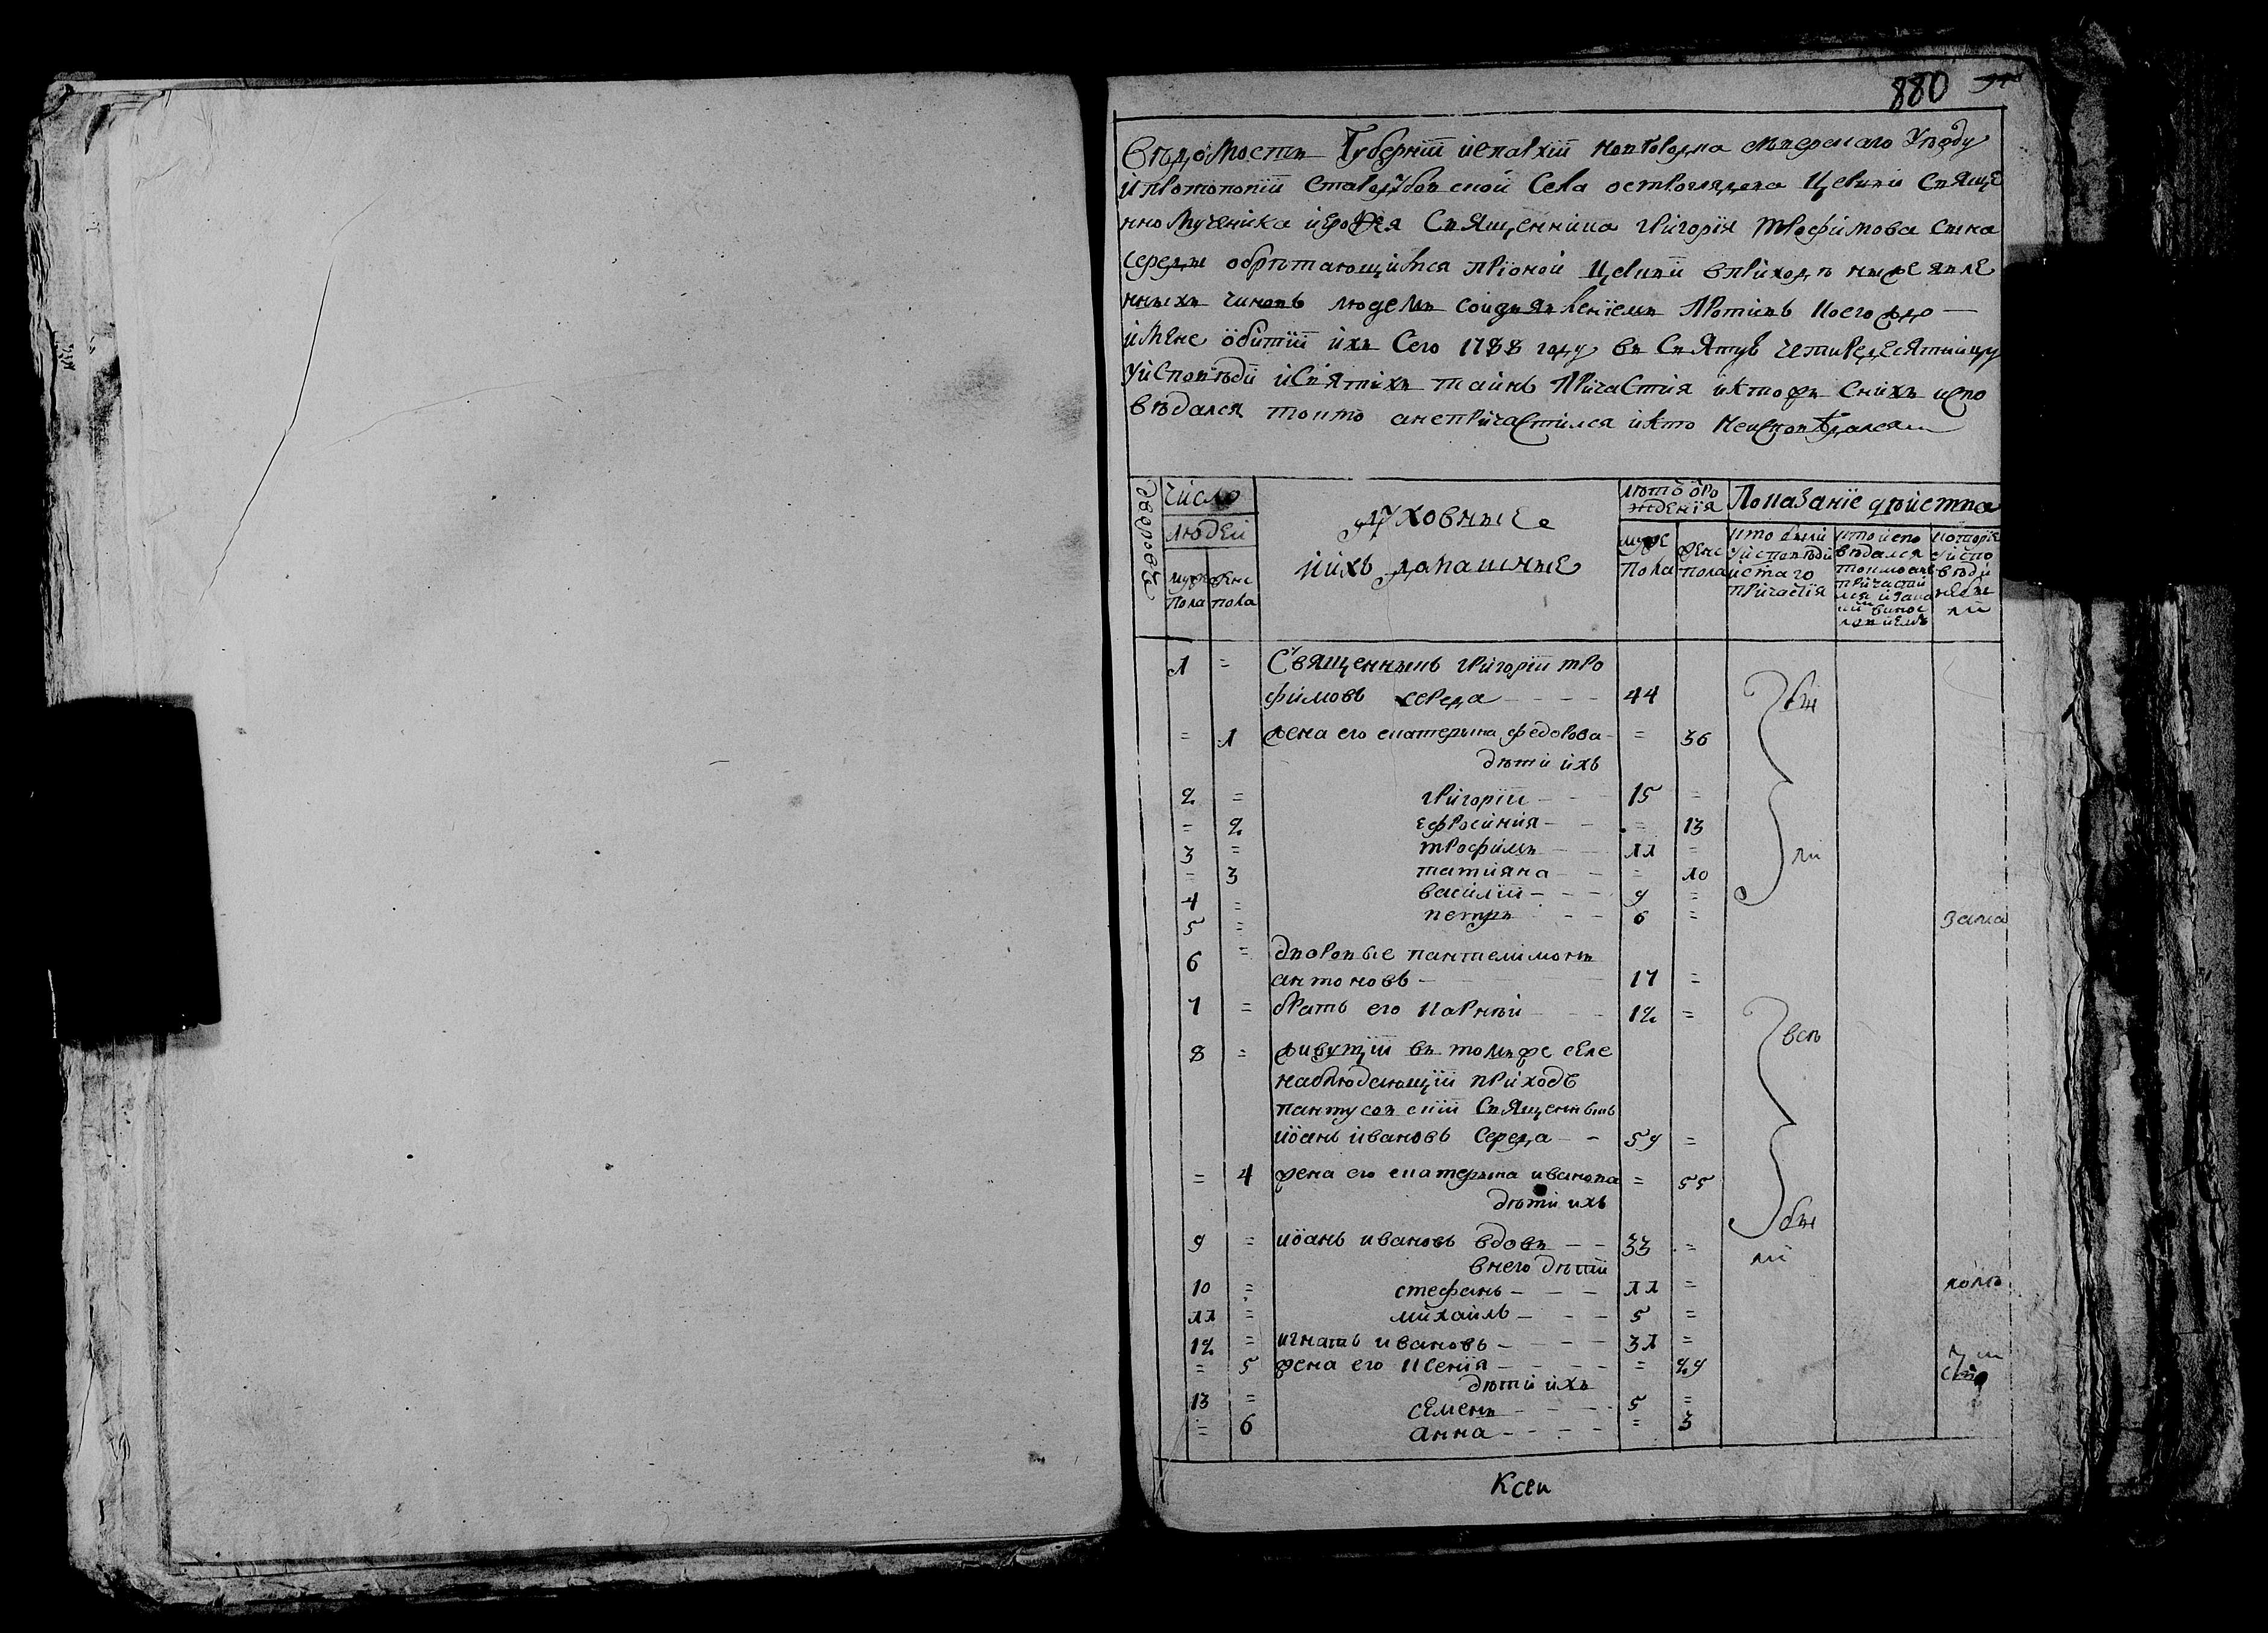 880
Вѣдомость Губернїи иепархїи новгородка сѣверскаго Уѣзду
и протопопїи стародубовской Села остроглядова Церкви Свяще
нномученика иерофея Священника григорїя трофимова сына
середы обрѣтающимся прїоной церквѣ вприходѣ нижеявле
нныхъ чиновъ людемъ соизъявленїемъ противъ коегождо
имене обитїи ихъ Сего 1788 году въ Святую четиредесятницу
уисповѣди исвятихъ таинъ причастїя иктожъ снихъ испо
вѣдался токмо анепричастился икто неисповѣдался
Дворовъ
число
людей
муже пола
женс пола
духовные
иихъ домашные
лѣтъ ѡро
жденїя
муже пола
женс пола
Показанїе дѣйства
кто были уисповѣди истаго причастїя
ктоиспо вѣдался токмоане причасти лся
которїе уиспо вѣди небы ли
1 = Священникъ григорїи тро
фимовъ середа - - - 44
= 1 жена его екатерына федорова - = 36
дѣти ихъ
2 = григорїи - - 15 =
= 2 ефросинїя - - = 13
3 = трофимъ - - 11 =
= 3 татияна - - = 10
4 = василїи - - - 9 =
5 = петръ - - 6 =
6 = дворовые пантелимонъ
антоновъ - 17 =
7 = братъ его корнѣи - - 12 =
8 = живущїи въ томъже селе
наблюдающїи приходъ
пантусовскїи Священникъ
иоанъ ивановъ Середа - - 59 =
= 4 жена его екатерына иванова = 55
дѣти ихъ
9 = иоанъ ивановъ вдовъ - - 33 =
внего дѣти
10 = стефанъ - - - 11 =
11 = михаилъ - - - 5 =
12 = игнатъ ивановъ - - - - 31 =
= 5 жена его ксенїя - - - - = 29
дѣти ихъ
13 = семенъ - - - - 5 =
= 6 анна - - - - = 3
бы
ли
всѣ
бы
ли
зама
лолѣ
Ксен